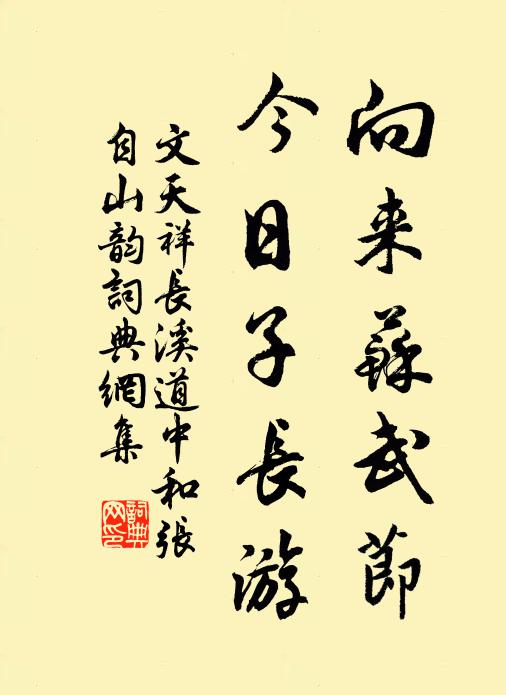 向来蘇武節
今日子長游
文天祥長溪道中和張
自山韵詞典網集
詞典网印